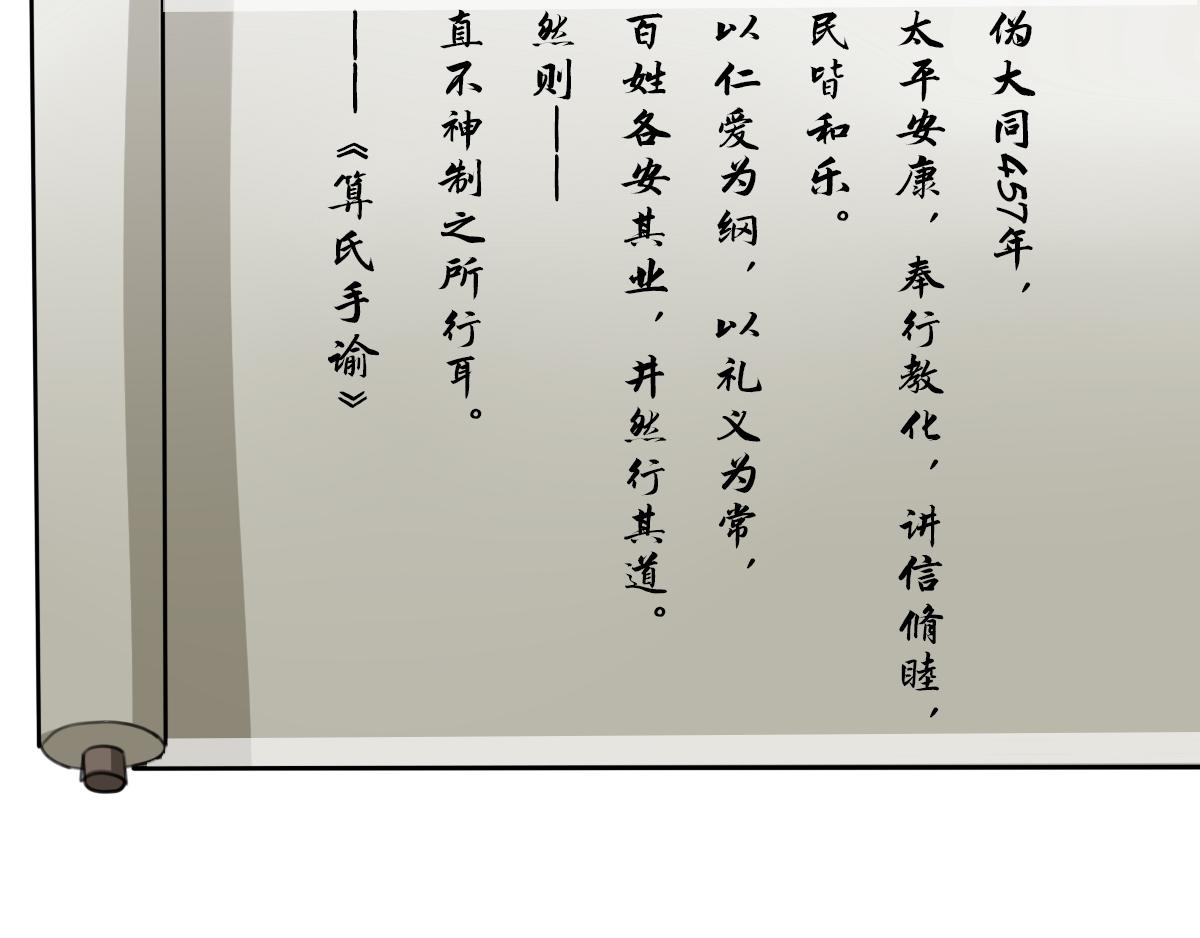 伪大同457年，
太平安康，奉行教化，讲信脩睦，
民皆和乐。
以仁爱为纲，以礼义为常，
百姓各安其业，井然行其道。
然则——
直不神制之所行耳。
——《算氏手谕》